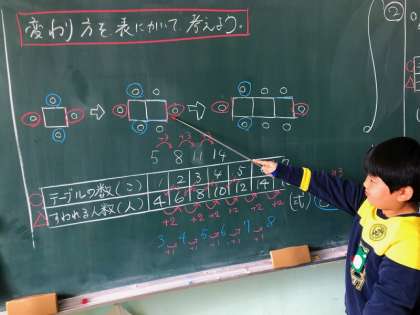 変わり方を表にかいて、考えよう。
②
+3 +3
5 8 11 14
テーブルの数(こ) 1 2 3 4 5
すわれる人数(人) 4 6 8 10 12 14
+2 +2 +2 +2 +2
(式)
3 4 5 6 7 8
+1 +1 +1 +1 +1